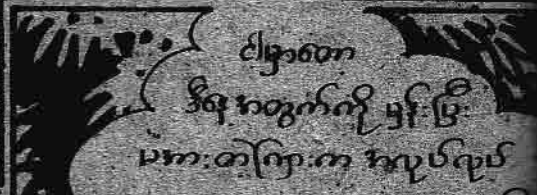 ငါမှာတော
ဒီနေ့အတွက်ကို မုန်းပြီး
မကောင်းတကြားက အလုပ်လုပ်